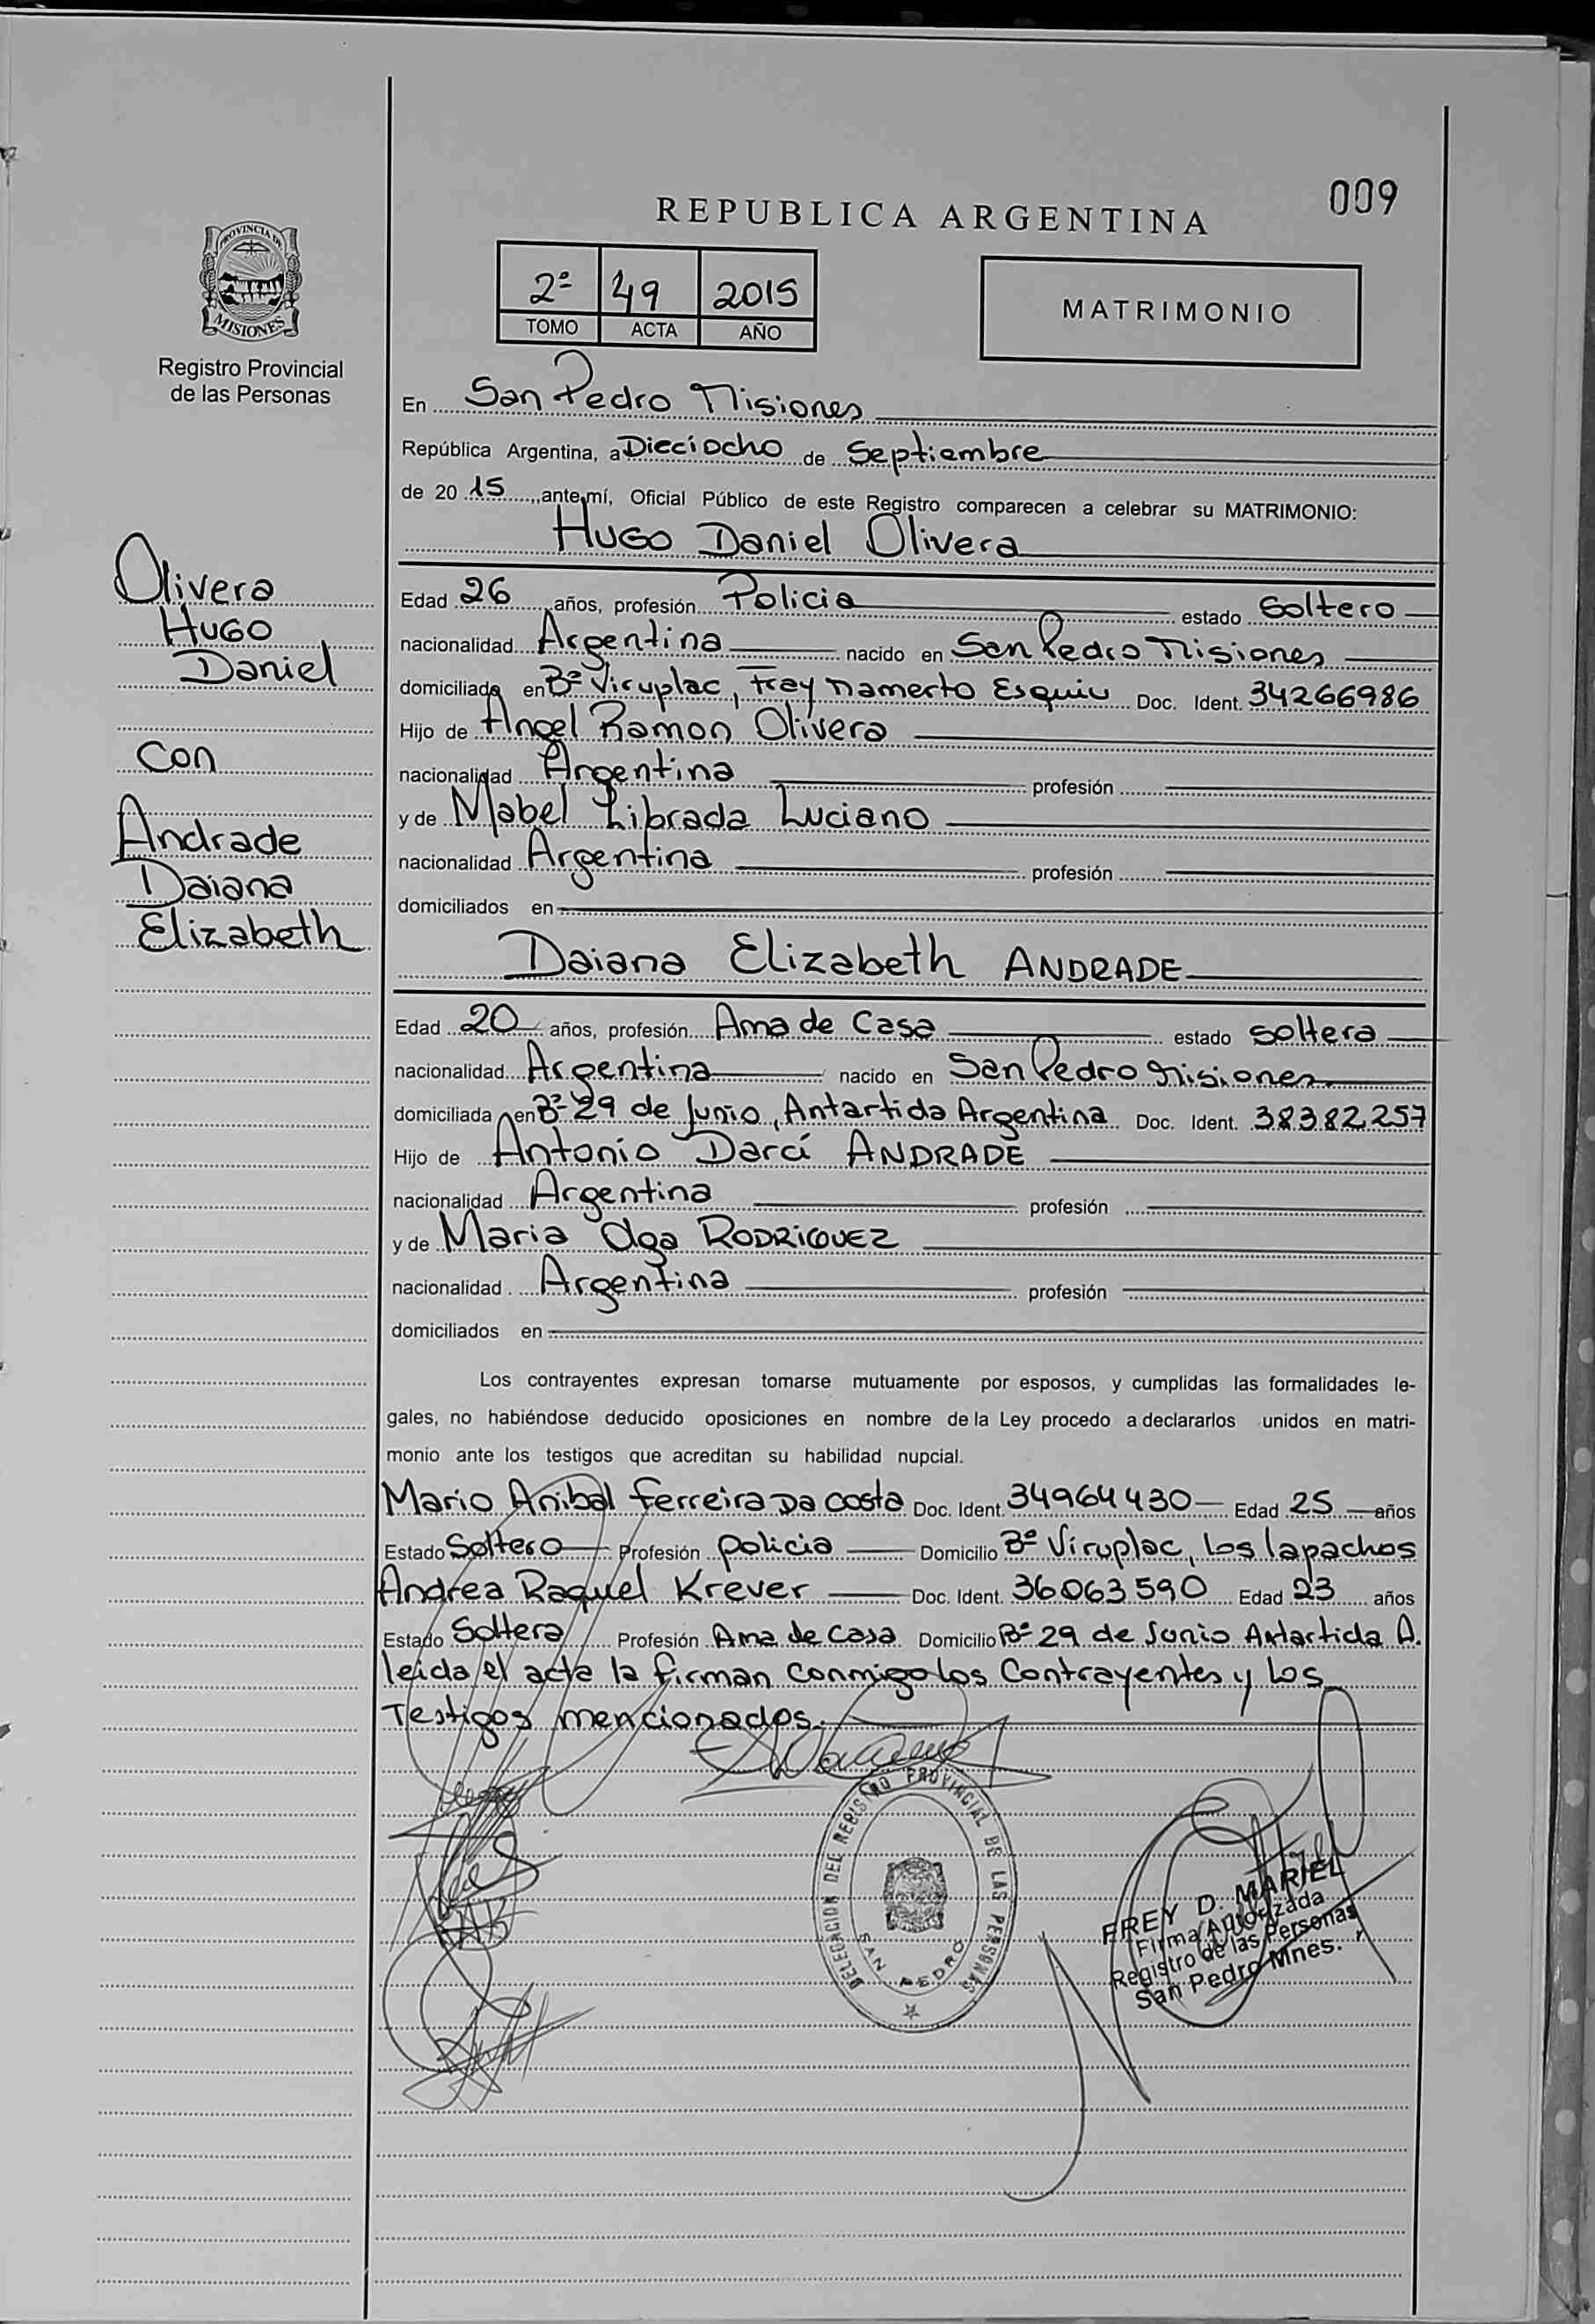 009
REPUBLICA ARGENTINA
PROVINCIA DE
MISIONES
Registro Provincial
de las Personas
2º 49 2015
TOMO ACTA AÑO
MATRIMONIO
En San Pedro Misiones
República Argentina, a Dieciocho de Septiembre
de 20 15, ante mí, Oficial Público de este Registro comparecen a celebrar su MATRIMONIO:
Hugo Daniel Olivera
Olivera
Hugo
Daniel
Con
Andrade
Daiana
Elizabeth
Edad 26 años, profesión Policia estado Soltero
nacionalidad Argentina nacido en San Pedro Misiones
domiciliado en Bº Viruplac, Fray Mamerto Esquiu Doc. Ident. 34266986
Hijo de Angel Ramon Olivera
nacionalidad Argentina profesión
y de Mabel Librada Luciano
nacionalidad Argentina profesión
domiciliados en
Daiana Elizabeth ANDRADE
Edad 20 años, profesión Ama de Casa estado soltera
nacionalidad Argentina nacido en San Pedro Misiones
domiciliada en Bº 29 de Junio, Antartida Argentina Doc. Ident. 38382257
Hijo de Antonio Darcí ANDRADE
nacionalidad Argentina profesión
y de Maria Olga RODRIGUEZ
nacionalidad Argentina profesión
domiciliados en
Los contrayentes expresan tomarse mutuamente por esposos, y cumplidas las formalidades le-
gales, no habiéndose deducido oposiciones en nombre de la Ley procedo a declararlos unidos en matri-
monio ante los testigos que acreditan su habilidad nupcial.
Mario Anibal Ferreira Da costa Doc. Ident. 34964430 Edad 25 años
Estado Soltero Profesión policia Domicilio Bº Viruplac, Los lapachos
Andrea Raquel Krever Doc. Ident. 36063590 Edad 23 años
Estado Soltera Profesión Ama de Casa Domicilio Bº 29 de Junio Antartida A.
leida el acta la firman conmigo los Contrayentes y los
Testigos mencionados.
DELEGACION DEL REGISTRO PROVINCIAL DE LAS PERSONAS
SAN PEDRO
FREY D. MARIEL
Firma Autorizada
Registro de las Personas
San Pedro Mnes.